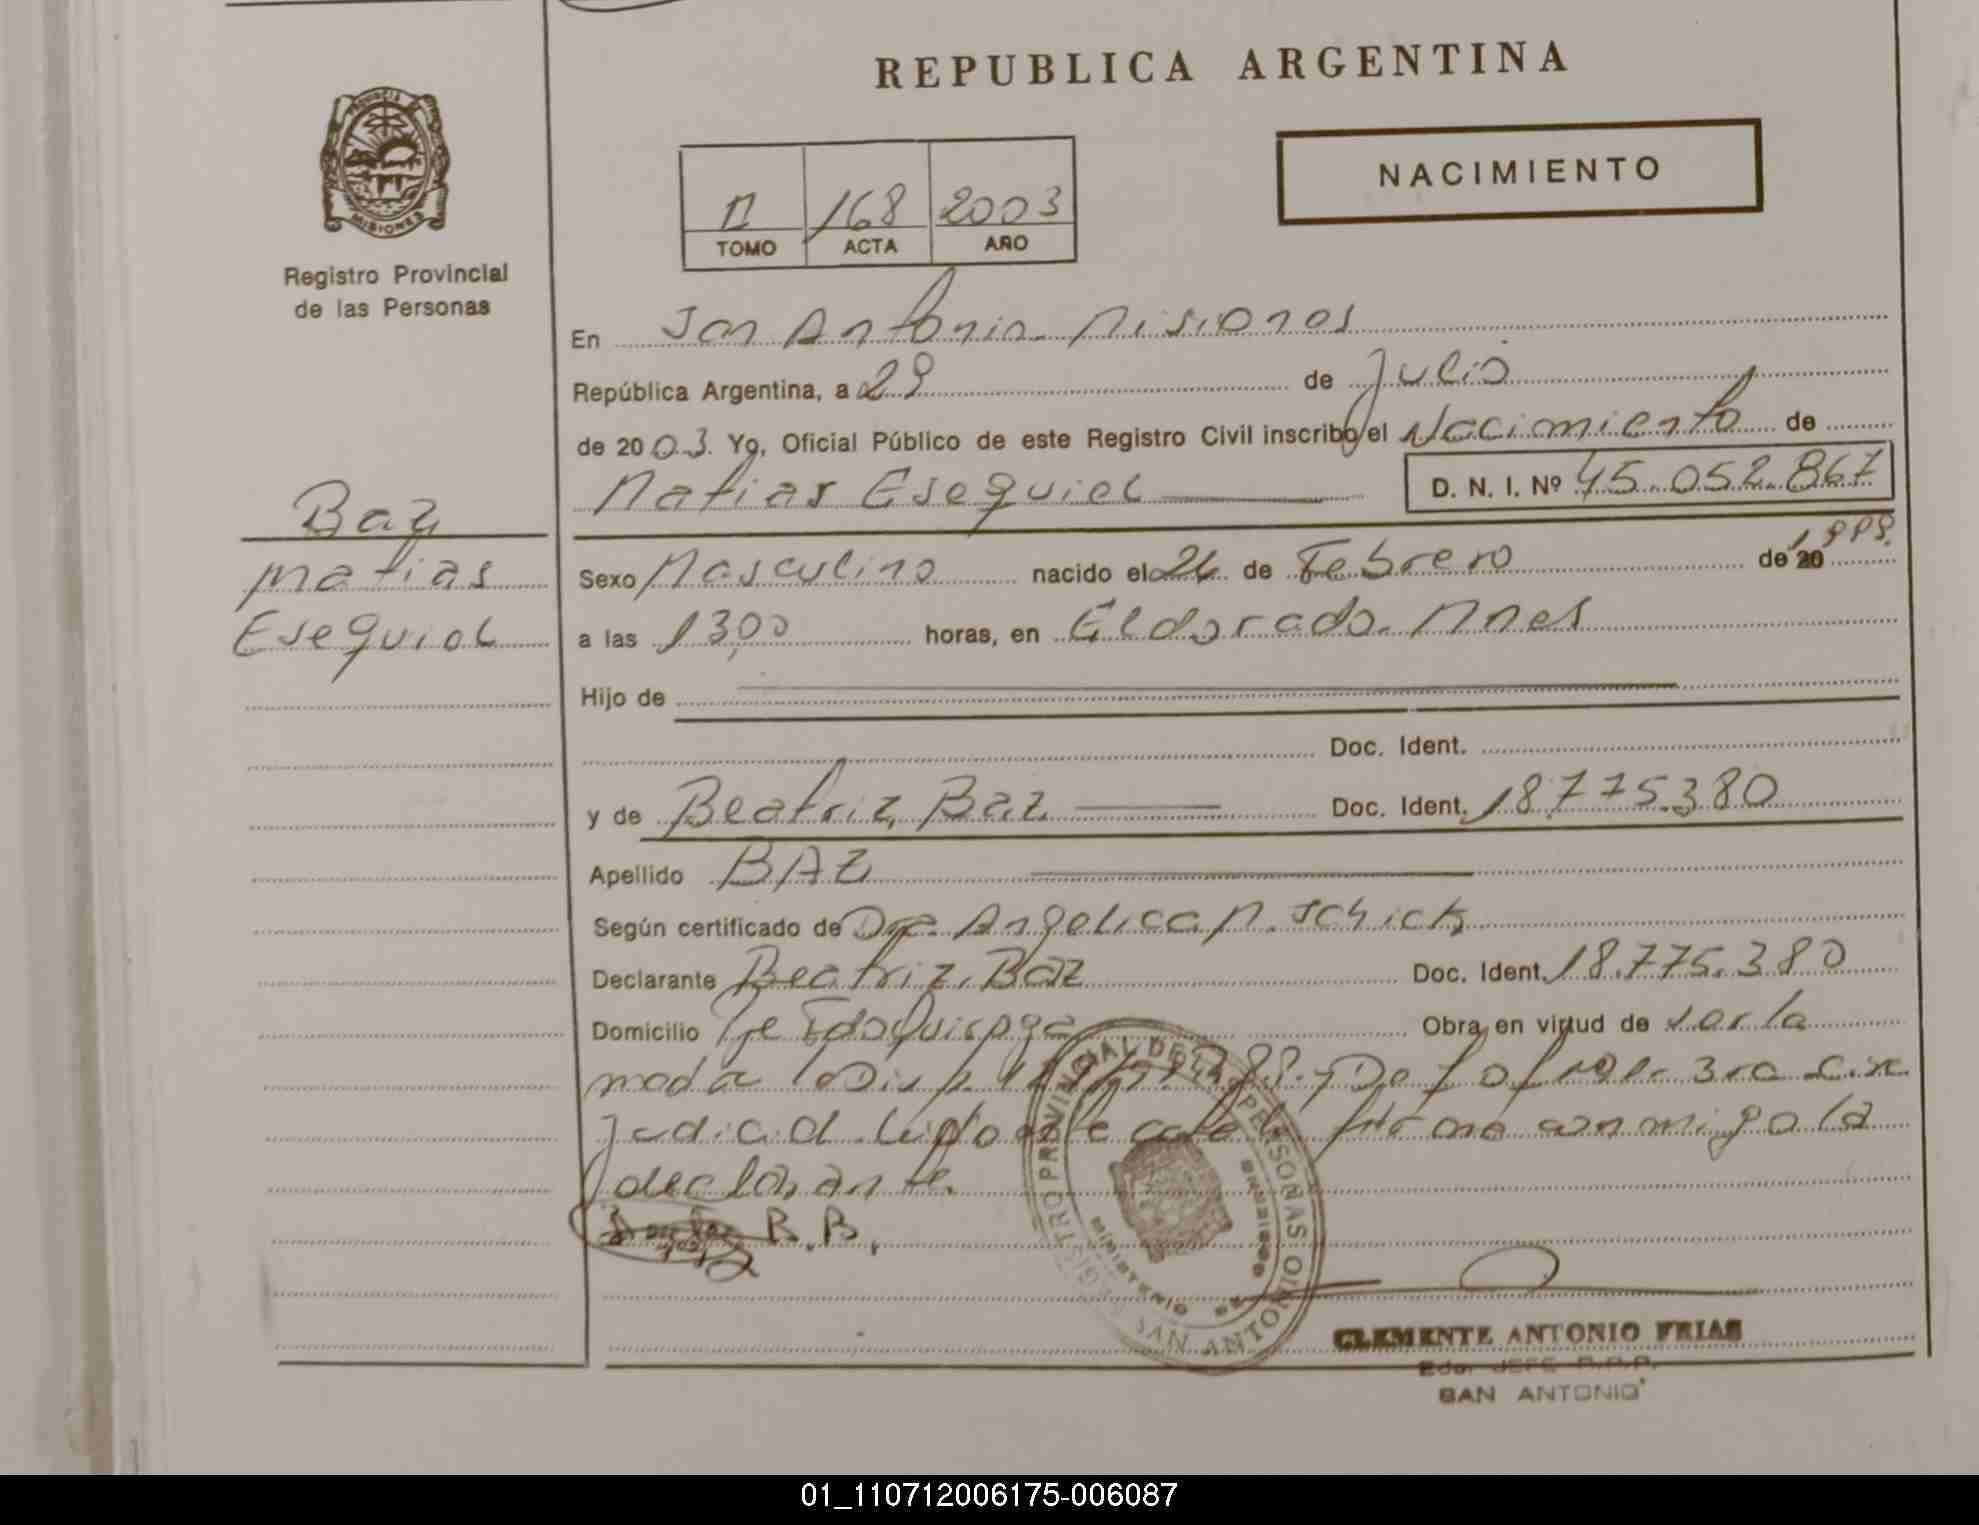 REPUBLICA ARGENTINA
PROVINCIA
MISIONES
Registro Provincial
de las Personas
NACIMIENTO
II 168 2003
TOMO ACTA AÑO
En San Antonio Misiones
República Argentina, a 29 de Julio
de 2003. Yo, Oficial Público de este Registro Civil inscribo el Nacimiento de
Matias Esequiel D. N. I. Nº 45.052.867
Baz
Matias
Esequiel
Sexo Masculino nacido el 26 de Febrero de 20 1999.
a las 13,00 horas, en Eldorado. Mnes
Hijo de
Doc. Ident.
y de Beatriz Baz Doc. Ident. 18.775.380
Apellido BAZ
Según certificado de Dra. Angelica M. Schick
Declarante Beatriz Baz Doc. Ident. 18.775.380
Domicilio Obra en virtud de ser la
3ra
firma conmigo la
declarante.
B. B.
REGISTRO PROVINCIAL DE PERSONAS
MINISTERIO DE
SAN ANTONIO
CLEMENTE ANTONIO FRIAS
JEFE R.P.P.
SAN ANTONIO
01_110712006175-006087